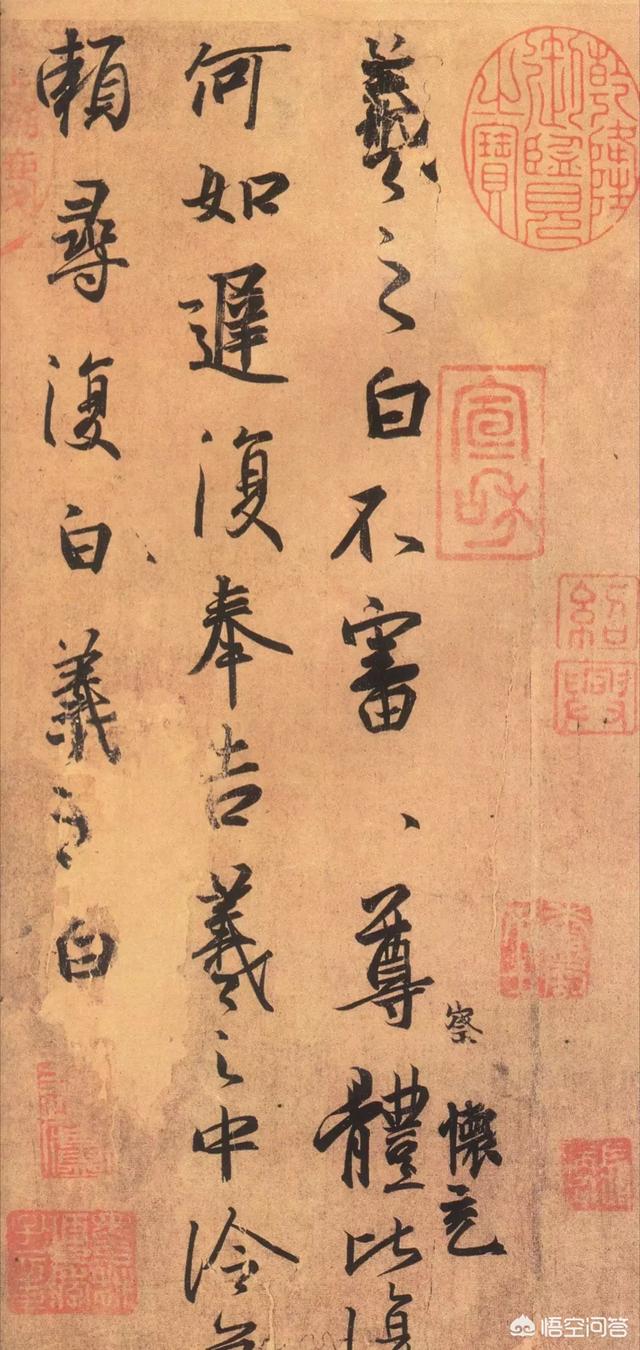 乾隆御覽之寶
宣和
紹興
察 懷充
羲之白不審、尊體比復
何如遲復奉告羲之中冷
賴尋復白、羲之白
悟空问答